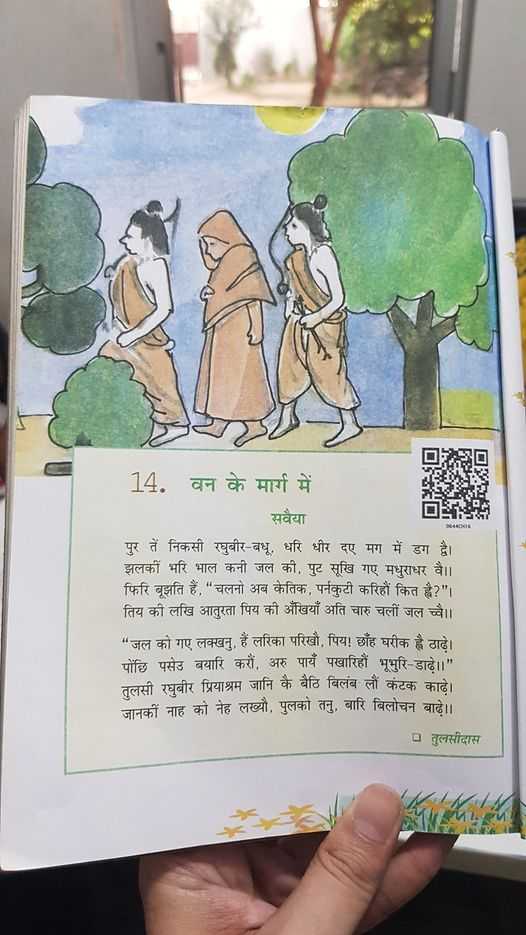 14. वन के मार्ग में
सवैया
पुर तें निकसी रघुबीर-बधू, धरि धीर दए मग में डग द्वै।
झलकीं भरि भाल कनी जल की, पुट सूखि गए मधुराधर वै।।
फिरि बूझति हैं, “चलनो अब केतिक, पर्नकुटी करिहौं कित ह्वै?”।
तिय की लखि आतुरता पिय की अँखियाँ अति चारु चलीं जल च्वै।।
“जल को गए लक्खनु, हैं लरिका परिखौ, पिय! छाँह घरीक ह्वै ठाढ़े।
पोंछि पसेउ बयारि करौं, अरु पायँ पखारिहौं भूभुरि-डाढ़े।।”
तुलसी रघुबीर प्रियाश्रम जानि कै बैठि बिलंब लौं कंटक काढ़े।
जानकीं नाह को नेह लख्यौ, पुलको तनु, बारि बिलोचन बाढ़े।।
❑ तुलसीदास